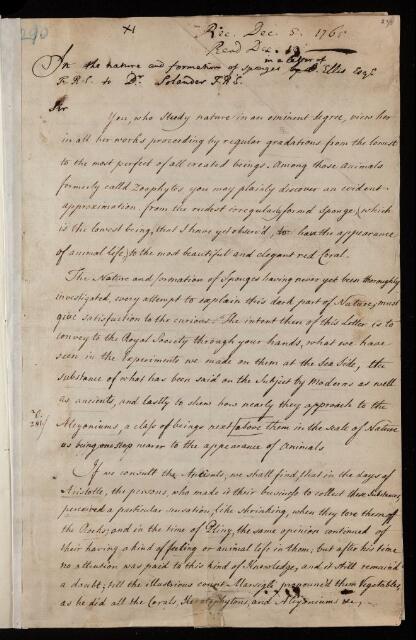 290
X
Rec. Dec. 5. 1765
Read Dec. 19.
in a letter of
On the nature and formation of sponges by J. Ellis Esqr.
F.R.S. to Dr. Solander F.R.S.
Sir
You, who study nature in an eminent degree, view her
in all her works proceeding by regular gradations from the lowest
to the most perfect of all created beings. Among those animals
formerly calld Zoophytes you may plainly discover an evident
approximation from the rudest irregularly formd Sponge, (which
is the lowest being, that I have yet observ'd, to have the appearance
of animal life) to the most beautiful and elegant red Coral.
The Nature and formation of Sponges having never yet been thoroughly
investigated, every attempt to explain this dark part of Nature, must
give satisfaction to the curious. The intent then of this Letter is to
convey to the Royal Society through your hands, what we have
seen in the Experiments we made on them at the Sea Side, the
substance of what has been said on the Subject by Moderns as well
as, ancients, and lastly to shew how nearly they approach to the
Alcyoniums, a class of beings next above them in the scale of Nature
as being one step nearer to the appearance of Animals
If we consult the Antients, we shall find, that in the days of
Aristotle, the persons, who made it their business to collect these Substances,
perceived a particular sensation, like shrinking, when they tore them off
the Rocks; and in the time of Pliny, the same opinion continued of
their having a kind of feeling or animal life in them; but after his time
no attention was paid to this kind of Knowledge, and it still remain'd
a doubt; till the illustrious count Marsigli pronounc'd them Vegetables,
as he did all the Corals, Keratophytons, and Alcyoniums